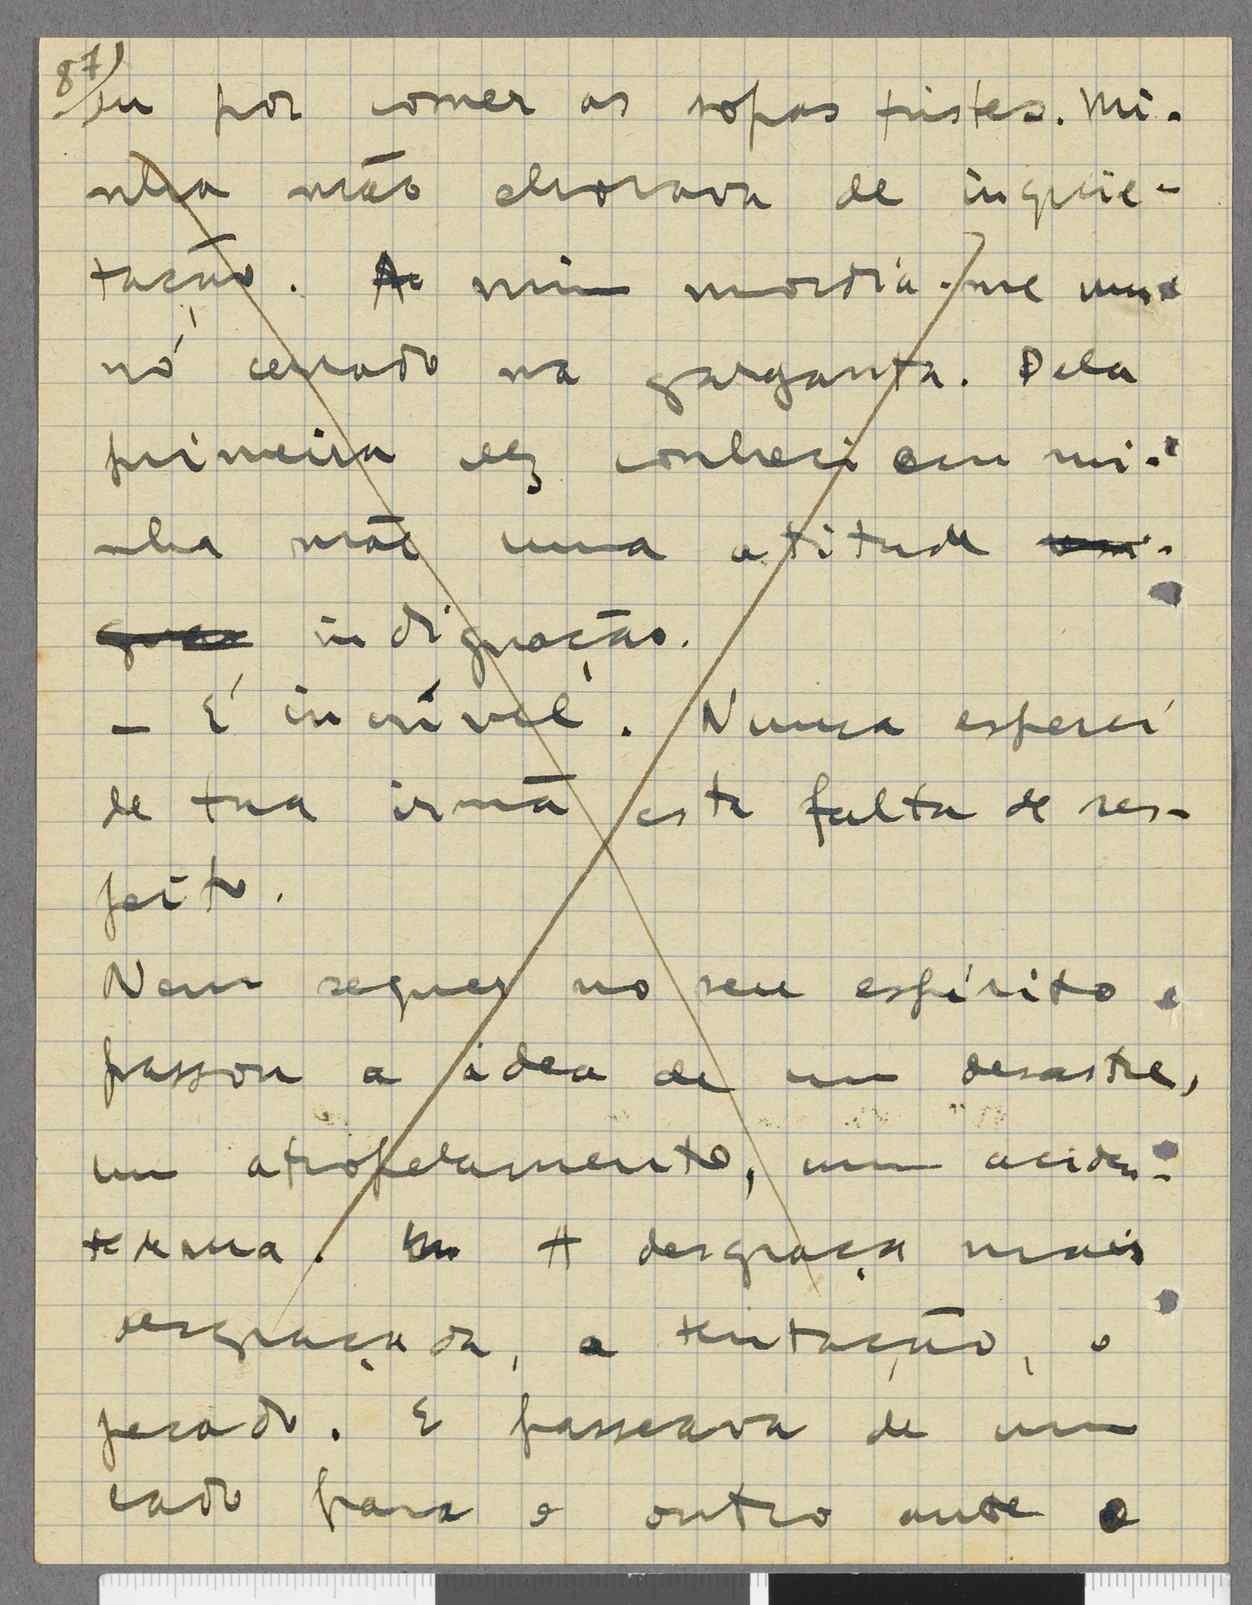 87)
eu por comer as sopas tristes. Mi-
nha mãe chorava de inquie-
tação. A mim mordia-me um
nó cerrado na garganta. Pela
primeira vez conheci em mi-
nha mãe uma atitude
indignação.
– É incrível. Nunca esperei
de tua irmã esta falta de res-
peito.
Nem sequer no seu espírito
passou a idea de um desastre,
um atropelamento, um aciden-
te numa. A desgraça mais
desgraçada, a tentação, o
pecado. E passeava de um
lado para o outro ante o